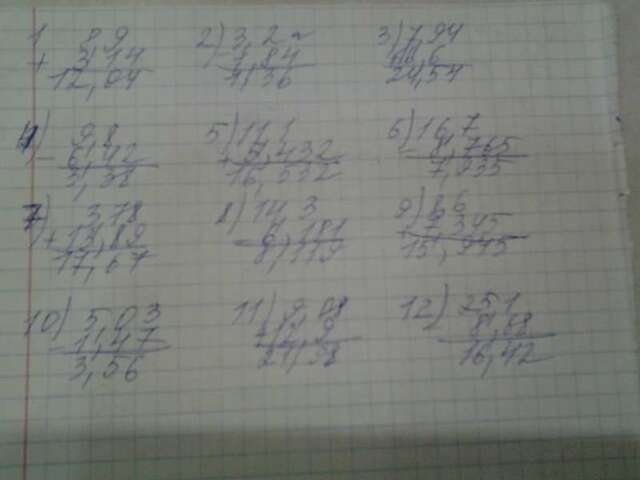 1 8,9 2) 3,2 3) 7,94
+ 3,14 - 1,84 + 16,6
12,04 1,36 24,54
4) 9,8 5) 11,1 6) 16,7
- 6,42 + 5,432 - 8,765
3,38 16,532 7,935
7) 3,78 8) 14,3 9) 8,6
+ 13,89 - 6,181 + 7,345
17,67 8,119 15,945
10) 5,03 11) 9,08 12) 25,1
- 1,47 + 12,9 - 8,68
3,56 21,98 16,42